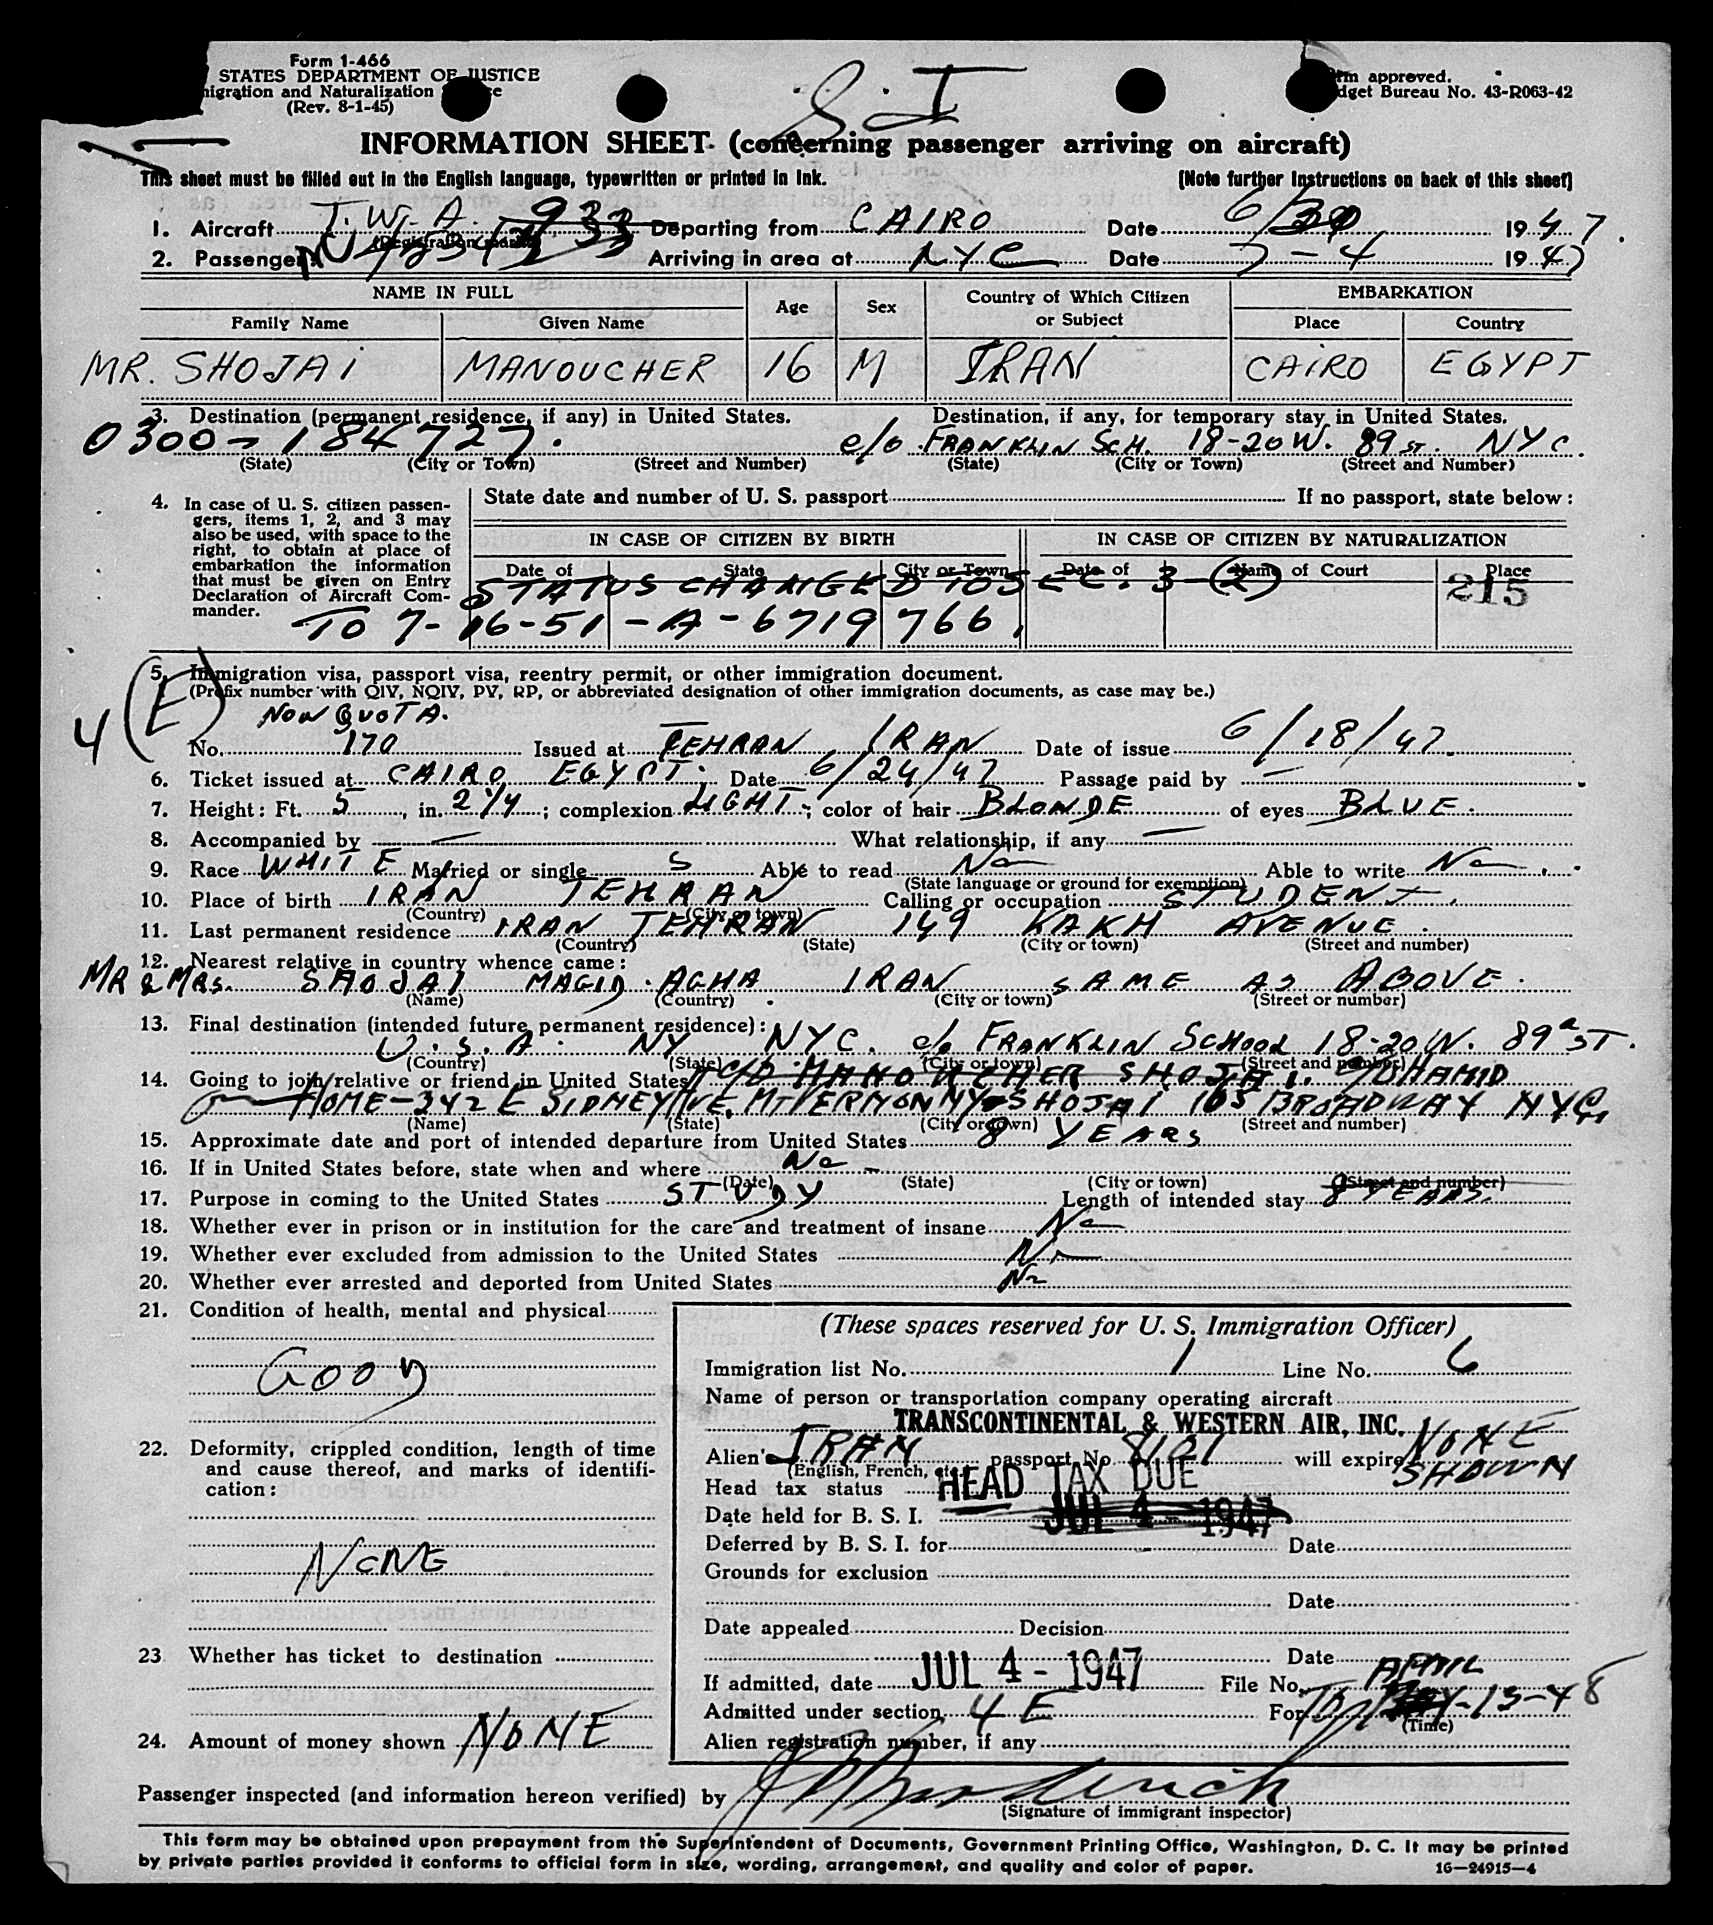 Form 1-466
STATES DEPARTMENT OF JUSTICE
igration and Naturalization
(Rev. 8-1-45)
S I
approved.
dget Bureau No. 43-R063-42
INFORMATION SHEET (concerning passenger arriving on aircraft)
This sheet must be filled out in the English language, typewritten or printed in ink.
(Note further instructions on back of this sheet)
1. Aircraft T.W.A. 933 Departing from CAIRO Date 6/30 1947.
(Registration mark)
2. Passenger Arriving in area at NYC Date 7-4 1947
NAME IN FULL Age Sex Country of Which Citizen or Subject EMBARKATION
Family Name Given Name Place Country
MR. SHOJAI MANOUCHER 16 M IRAN CAIRO EGYPT
3. Destination (permanent residence, if any) in United States. Destination, if any, for temporary stay in United States.
0300-184727. c/o FRANKLIN SCH. 18-20 W. 89 ST. NYC.
(State) (City or Town) (Street and Number) (State) (City or Town) (Street and Number)
4. In case of U. S. citizen passen-
gers, items 1, 2, and 3 may
also be used, with space to the
right, to obtain at place of
embarkation the information
that must be given on Entry
Declaration of Aircraft Com-
mander.
State date and number of U. S. passport If no passport, state below:
IN CASE OF CITIZEN BY BIRTH IN CASE OF CITIZEN BY NATURALIZATION
Date of State City or Town Date of Name of Court Place
STATUS CHANGED TO SEC. 3-(2) 215
TO 7-16-51-A-6719766.
5. Immigration visa, passport visa, reentry permit, or other immigration document.
(Prefix number with QIV, NQIV, PV, RP, or abbreviated designation of other immigration documents, as case may be.)
4 (E) NON QUOTA.
No. 170 Issued at TEHRAN, IRAN Date of issue 6/18/47.
6. Ticket issued at CAIRO EGYPT. Date 6/24/47 Passage paid by —
7. Height: Ft. 5, in. 2 1/4; complexion LIGHT; color of hair BLONDE of eyes BLUE.
8. Accompanied by — What relationship, if any —
9. Race WHITE Married or single S Able to read No Able to write No.
(State language or ground for exemption)
10. Place of birth IRAN TEHRAN Calling or occupation STUDENT.
(Country) (City or town)
11. Last permanent residence IRAN TEHRAN 149 KAKH AVENUE.
(Country) (State) (City or town) (Street and number)
12. Nearest relative in country whence came:
MR & MRS. SHOJAI MAGID. AGHA IRAN SAME AS ABOVE.
(Name) (Country) (City or town) (Street or number)
13. Final destination (intended future permanent residence):
U.S.A. NY NYC. c/o FRANKLIN SCHOOL 18-20 W. 89 ST.
(Country) (State) (City or town) (Street and number)
14. Going to join relative or friend in United States C/O MANOUCHER SHOJAI. MOHAMID
HOME-342 E SIDNEY AVE. MT VERNON NY SHOJAI 165 BROADWAY NYC,
(Name) (State) (City or town) (Street and number)
15. Approximate date and port of intended departure from United States 8 YEARS
16. If in United States before, state when and where No -
(Date) (State) (City or town) (Street and number)
17. Purpose in coming to the United States STUDY Length of intended stay 8 YEARS.
18. Whether ever in prison or in institution for the care and treatment of insane No
19. Whether ever excluded from admission to the United States No
20. Whether ever arrested and deported from United States No
21. Condition of health, mental and physical
GOOD
22. Deformity, crippled condition, length of time
and cause thereof, and marks of identifi-
cation:
NONE
23 Whether has ticket to destination
24. Amount of money shown NONE
(These spaces reserved for U. S. Immigration Officer)
Immigration list No. 1 Line No. 6
Name of person or transportation company operating aircraft
TRANSCONTINENTAL & WESTERN AIR, INC.
Alien's IRAN passport No. 8121 will expire NONE SHOWN
(English, French, etc.)
Head tax status HEAD TAX DUE
Date held for B. S. I. JUL 4 - 1947
Deferred by B. S. I. for Date
Grounds for exclusion
Date
Date appealed Decision
Date
If admitted, date JUL 4 - 1947 File No.
Admitted under section 4 E For TO APRIL -15-48
(Time)
Alien registration number, if any
Passenger inspected (and information hereon verified) by
(Signature of immigrant inspector)
This form may be obtained upon prepayment from the Superintendent of Documents, Government Printing Office, Washington, D. C. It may be printed
by private parties provided it conforms to official form in size, wording, arrangement, and quality and color of paper. 16—24915-4